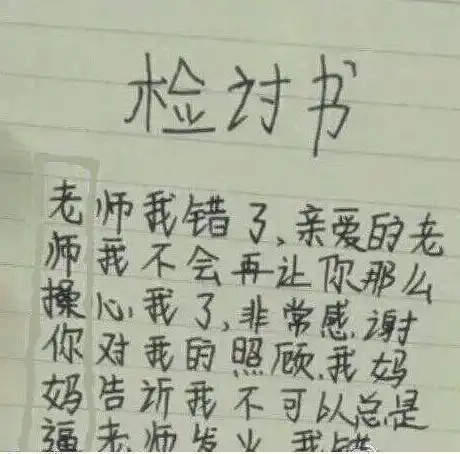 检讨书
老师我错了,亲爱的老
师我不会再让你那么
操心,我了,非常感谢
你对我的照顾.我妈
妈告诉我不可以总是
逼老师发火 我错